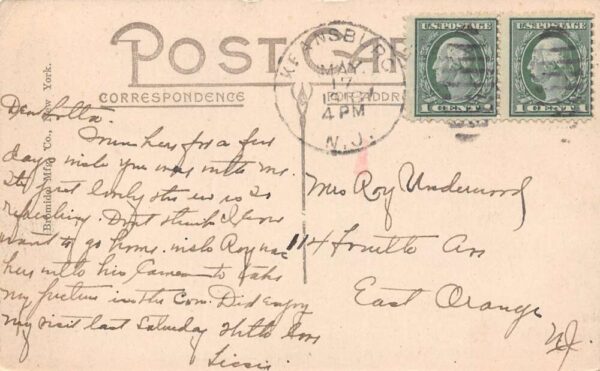 POST CARD
CORRESPONDENCE
FOR ADDR
KEANSBURG
MAY
17
4 PM
N.J.
U.S. POSTAGE
1 CENT 1
U.S. POSTAGE
1 CENT 1
Bromide Mfg Co., New York.
Dear Lotta-
here for a few
days wish you were with me.
It's just lovely the air is so
refreshing. Don't think I ever
want to go home. wish Roy was
here with his Camera to take
my picture in the Cow. Did enjoy
my visit last Saturday With love
Lizzie
Mrs Roy Underwood
114 Fourth Av
East Orange
NJ.